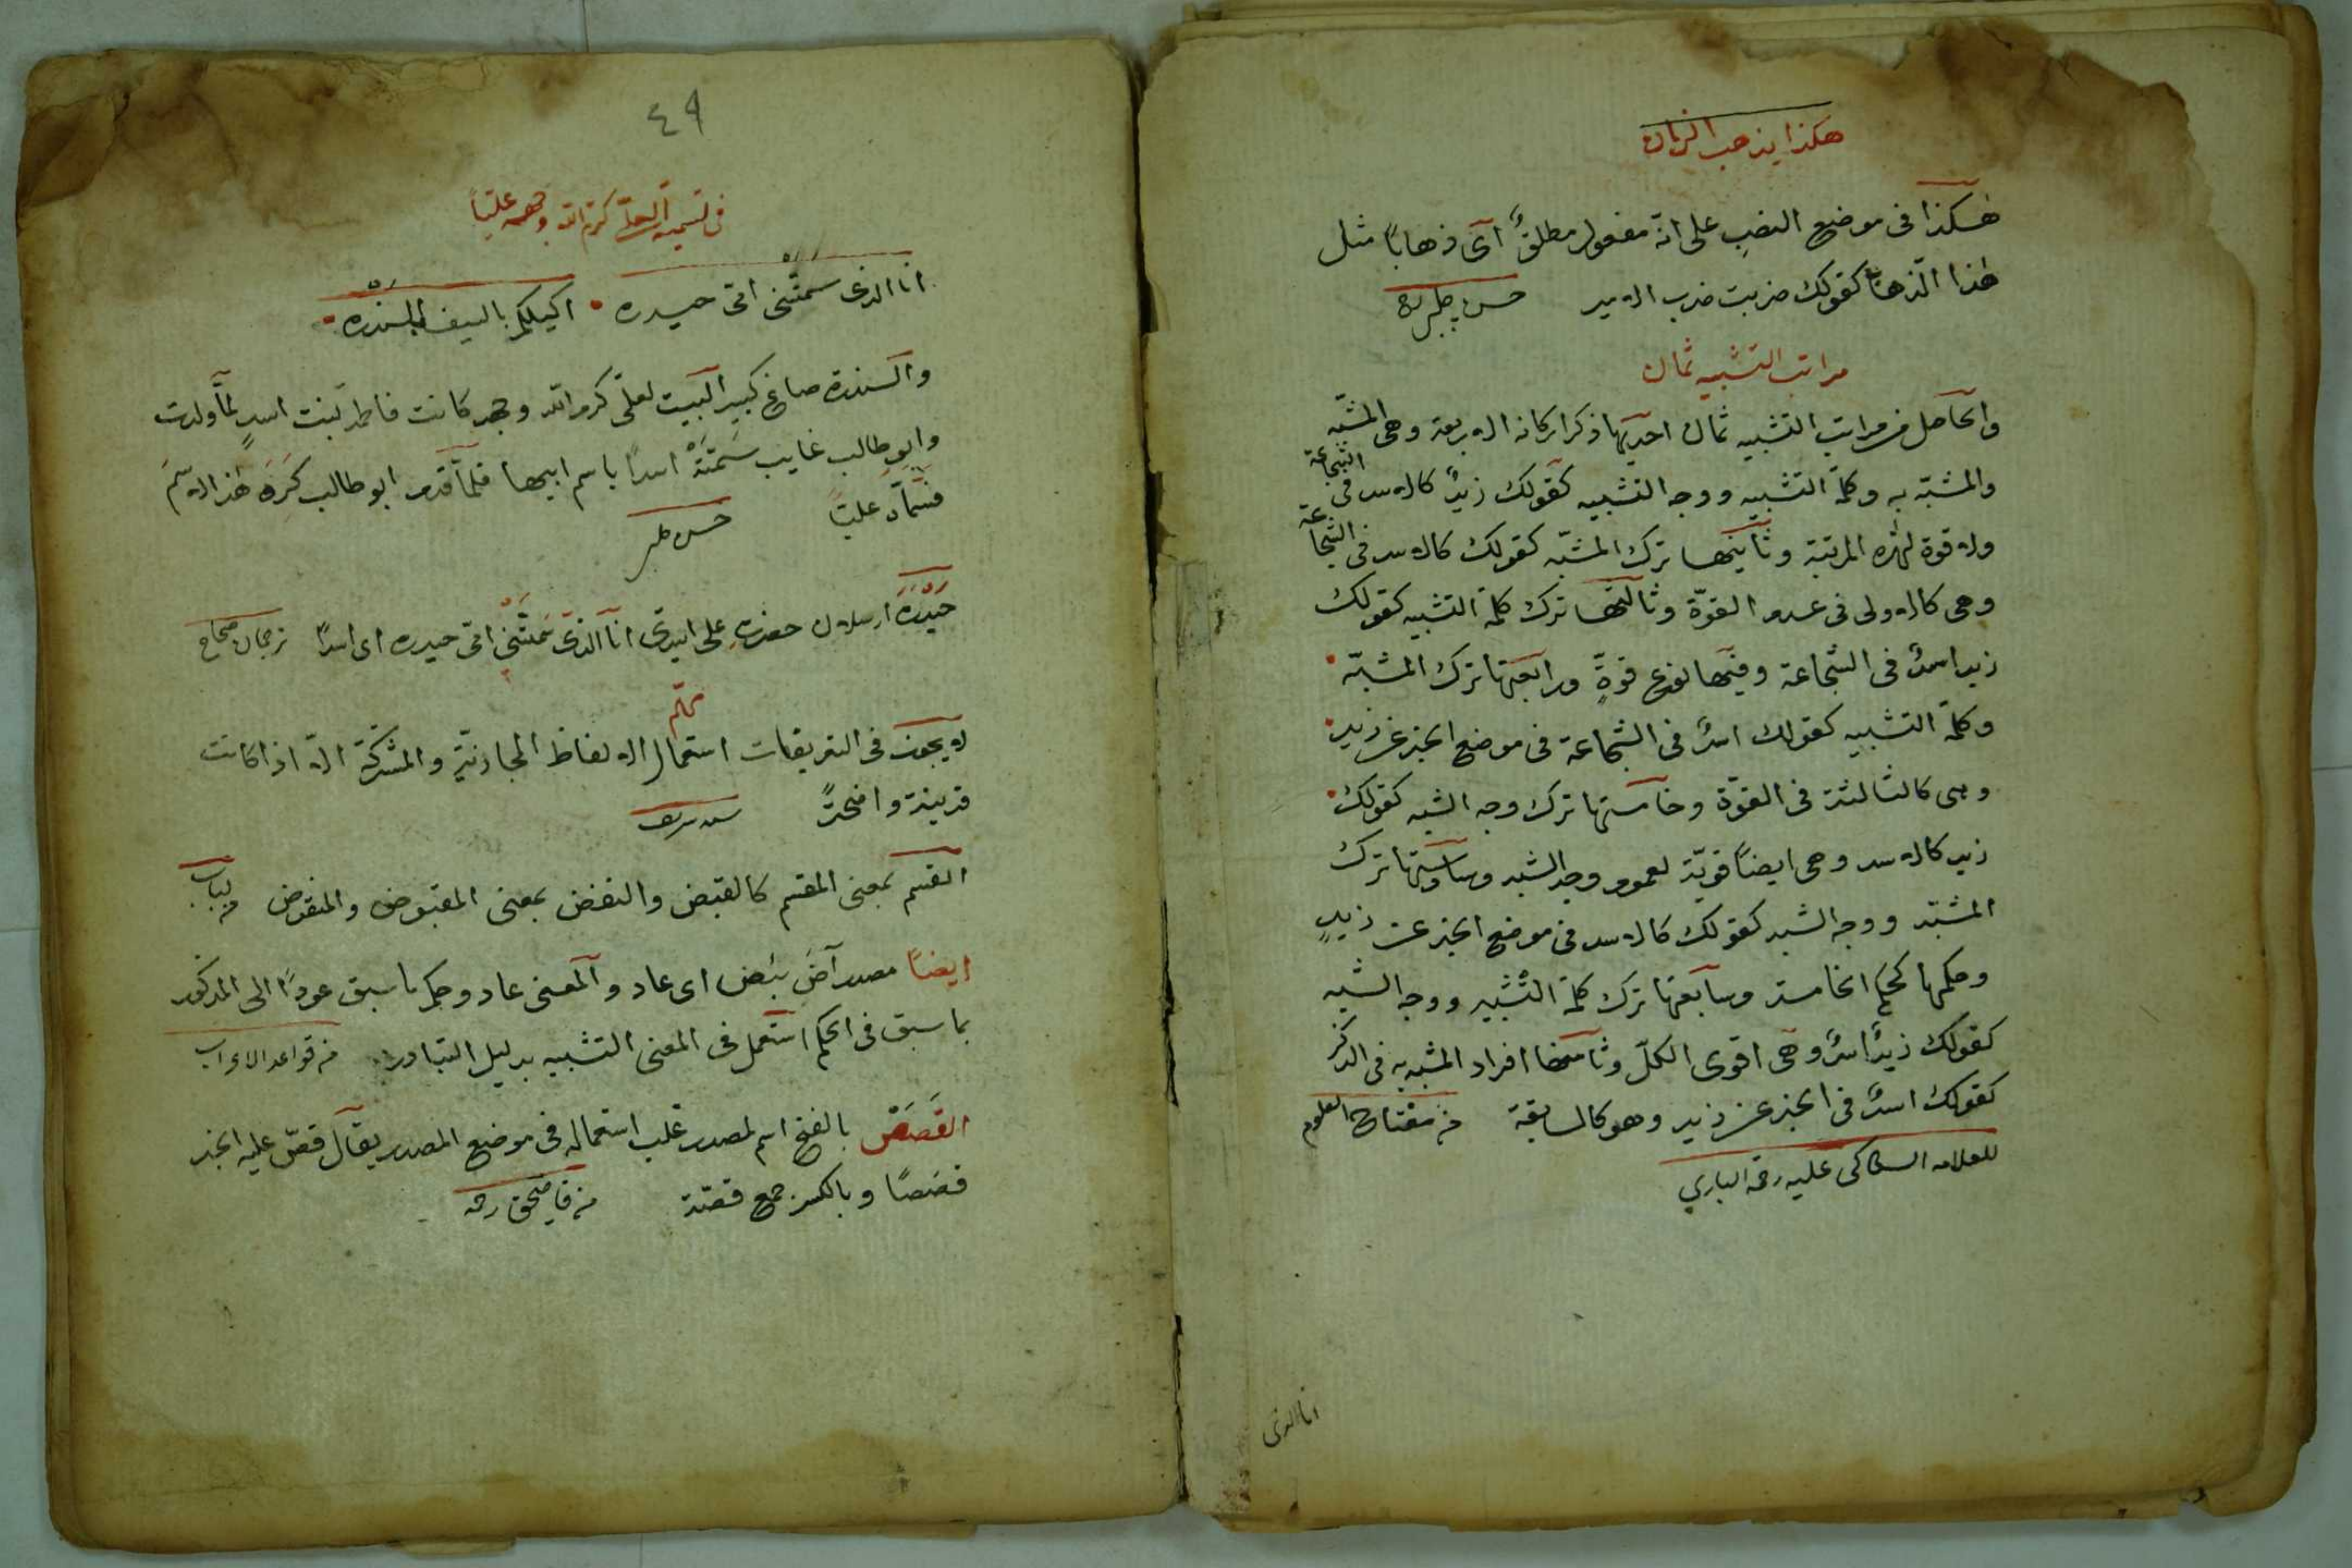 هكذا يذهب الزمان
هٰكذا فى موضع النصب على انّه مفعول مطلقٌ اى ذهابًا مثل
هٰذا الذّهاب كقولك ضربت ضرب الامير حسن چلبى
مراتب التشبيه ثمان
والحاصل من مراتب التشبيه ثمان احديها ذكر اركانه الاربعة وهى المشبّه
والمشبّه به وكلمة التشبيه ووجه التشبيه كقولك زيدٌ كالاسد فى الشجاعة
ولا قوة لهٰذه المرتبة وثانيتها ترك المشبّه كقولك كالاسد فى الشجاعة
وهى كالاولى فى عدم القوّة وثالثتها ترك كلمة التشبيه كقولك
زيد اسدٌ فى الشجاعة وفيها نوع قوّةٍ ورابعتها ترك المشبّه
وكلمة التشبيه كقولك اسدٌ فى الشجاعة فى موضع الخبر عن زيد
وهى كالثالثة فى القوّة وخامستها ترك وجه الشبه كقولك
زيد كالاسد وهى ايضًا قويّة لعموم وجه الشبه وسادستها ترك
المشبّه ووجه الشبه كقولك كالاسد فى موضع الخبر عن زيدٍ
وحكمها كحكم الخامسة وسابعتها ترك كلمة التّشبيه ووجه الشبه
كقولك زيدٌ اسدٌ وهى اقوى الكلّ وثامنتها افراد المشبه به فى الذكر
كقولك اسدٌ فى الخبر عن زيد وهو كالسابقة من مفتاح العلوم
للعلامه السكاكى عليه رحمة البارى
انا الذى
٤٩
فى تسمية العلىّ كرّم الله وجهه عليّاً
انا الذى سمّتنى امّى حيدره اكيلكم بالسيف كيل السندره
والسندرة صاع كبير البيت لعلى كرم الله وجهه كانت فاطمة بنت اسدٍ لمّا ولدت
وابو طالب غايب سَمّتْهُ اسدًا باسم ابيها فلمّا قدم ابو طالب كَرِهَ هٰذا الاسمَ
فسمّاه عليّا حسن چلبى
حَيْدَرَة ارسلان حضرت على ايتدى انا الذى سَمَّتْنى امّى حيدره اى اسدًا ترجمان صحاح
مهمّ
لا يجوز فى التعريفات استعمال الالفاظ المجازيّة والمشتركة الّا اذا كانت
قرينة واضحةً سيد شريف
القسم بمعنى المقسم كالقبض والنقض بمعنى المقبوض والمنقوض من لباب
ايضًا مصدر آضَ يئيض اى عاد والمعنى عاد وحكم ما سبق عودًا الى المذكور
بما سبق فى الحكم استعمل فى المعنى التشبيه بدليل التبادر من قواعد الاعراب
القَصَصُ بالفتح اسم لمصدر غلب استعماله فى موضع المصدر يقال قصّ عليه الخبر
قصَصًا وبالكسر جمع قصّة